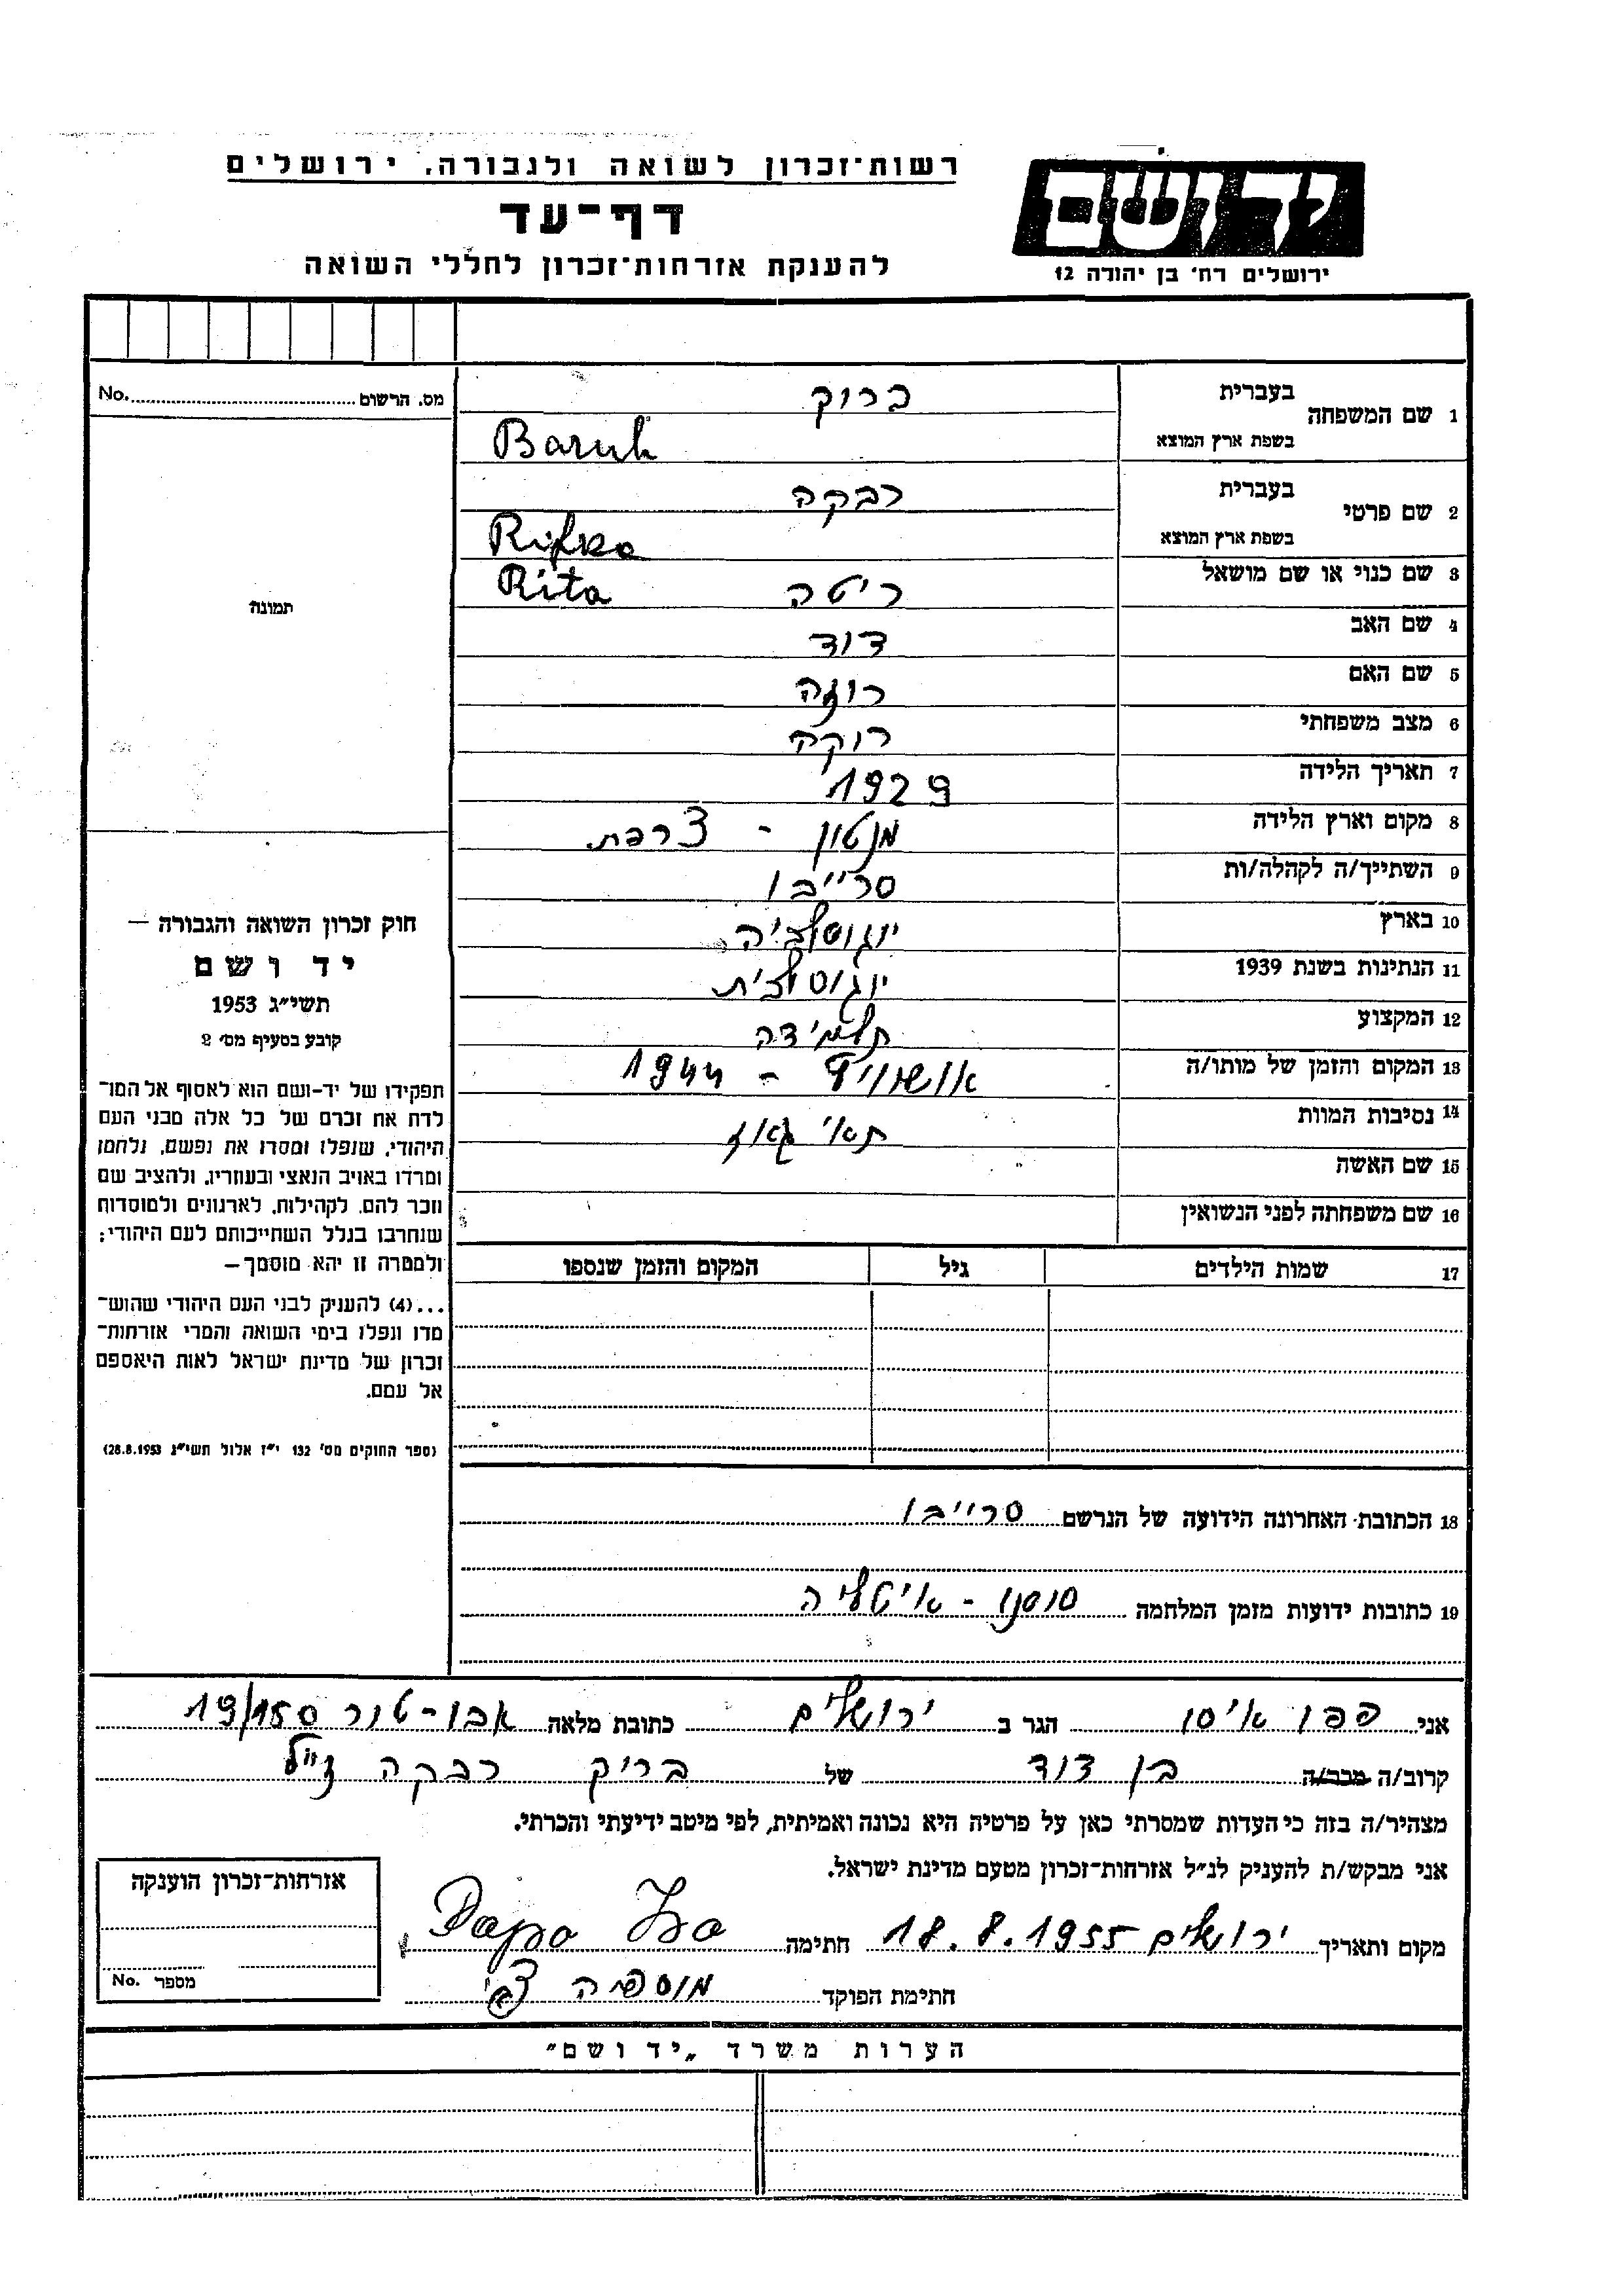 רשות-זכרון לשואה ולגבורה, ירושלים
דף-עד
להענקת אזרחות-זכרון לחללי השואה
יד ושם
ירושלים רח' בן יהודה 12
מס. הרשום No.
תמונה
1 שם המשפחה בעברית ברוך
בשפת ארץ המוצא Baruh
2 שם פרטי בעברית רבקה
בשפת ארץ המוצא Rifka
3 שם כנוי או שם מושאל ריטה Rita
4 שם האב דוד
5 שם האם רוזה
6 מצב משפחתי רוקה
7 תאריך הלידה 1929
8 מקום וארץ הלידה מנטון - צרפת
9 השתייך/ה לקהלה/ות סרייבו
10 בארץ יוגוסלביה
11 הנתינות בשנת 1939 יוגוסלבית
12 המקצוע תלמידה
13 המקום והזמן של מותו/ה אושוויץ - 1944
14 נסיבות המוות תאי גאז
15 שם האשה
16 שם משפחתה לפני הנשואין
17 שמות הילדים גיל המקום והזמן שנספו
18 הכתובת האחרונה הידועה של הנרשם סרייבו
19 כתובות ידועות מזמן המלחמה - איטליה
חוק זכרון השואה והגבורה —
יד ושם
תשי"ג 1953
קובע בסעיף מס' 2
תפקידו של יד-ושם הוא לאסוף אל המו-
לדת את זכרם של כל אלה מבני העם
היהודי, שנפלו ומסרו את נפשם, נלחמו
ומרדו באויב הנאצי ובעוזריו, ולהציב שם
וזכר להם, לקהילות, לארגונים ולמוסדות
שנחרבו בגלל השתייכותם לעם היהודי;
ולמטרה זו יהא מוסמך—
...(4) להעניק לבני העם היהודי שהוש-
מדו ונפלו בימי השואה והמרי אזרחות-
זכרון של מדינת ישראל לאות היאספם
אל עמם.
(ספר החוקים מס' 132 י"ז אלול תשי"ג 28.8.1953)
אני פפו איסו הגר ב ירושלים כתובת מלאה אבו-טור 19/150
קרוב/ה מכר/ה בן דוד של ברוך רבקה ז"ל
מצהיר/ה בזה כי העדות שמסרתי כאן על פרטיה היא נכונה ואמיתית, לפי מיטב ידיעתי והכרתי.
אני מבקש/ת להעניק לנ"ל אזרחות-זכרון מטעם מדינת ישראל.
מקום ותאריך ירושלים 18.8.1955 חתימה Papo Iso
חתימת הפוקד
אזרחות-זכרון הוענקה
מספר No.
הערות משרד „יד ושם"